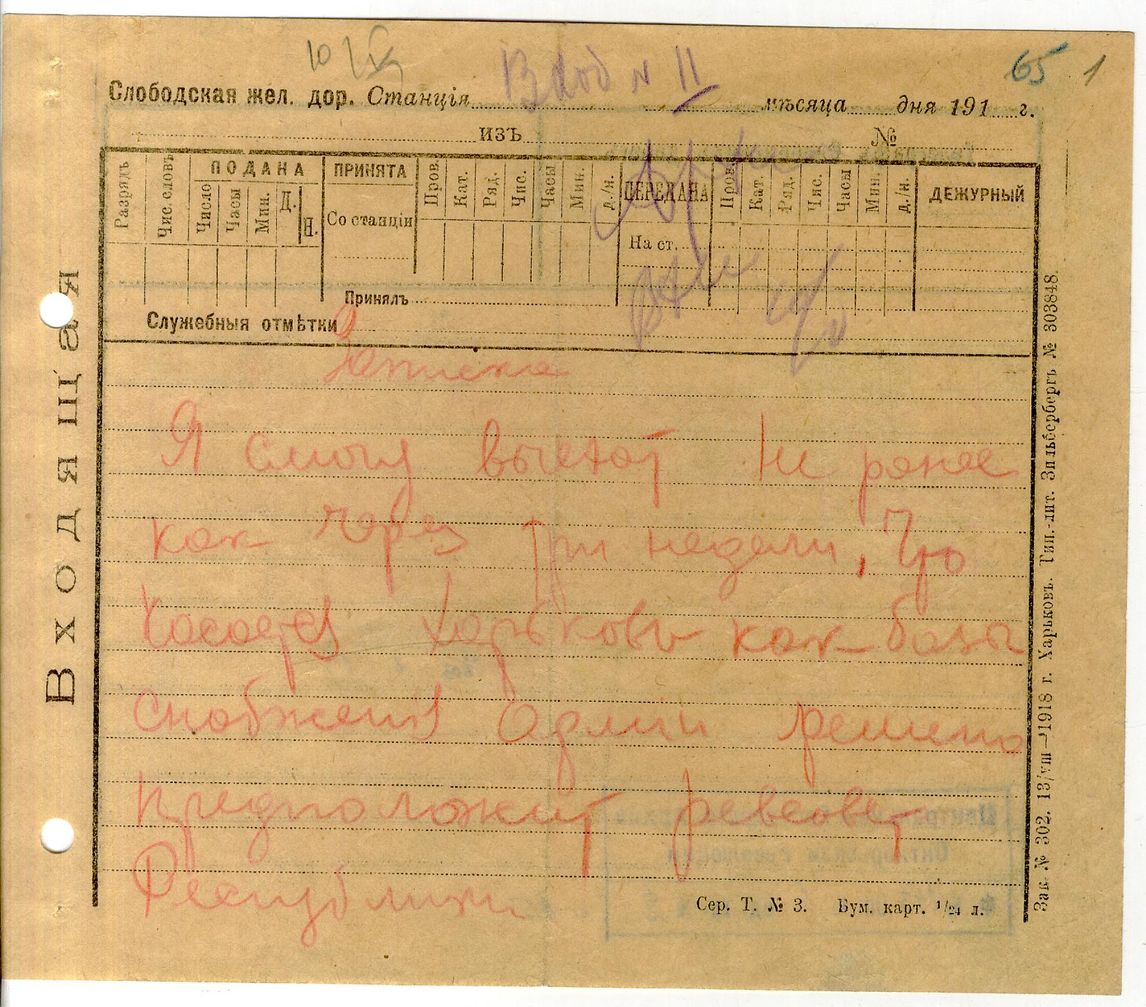 65 1
Вход N 11
Слободская жел. дор. Станція мѣсяца дня 191 г.
изъ №
Разрядъ Чис. словъ ПОДАНА ПРИНЯТА Пров. Кат. Ряд. Чис. Часы Мин. д./н. ПЕРЕДАНА Пров. Кат. Ряд. Чис. Часы Мин. д./н. ДЕЖУРНЫЙ
Число Часы Мин. Д. Н. Со станціи На ст.
Принялъ
Служебныя отмѣтки
Входящая
Записка
Я смогу выехат не ранее
как через три недели, Что
касается Харькова как базы
снабжения Армии решено
предположит реввовет
Республики
Сер. Т. № 3. Бум. карт. 1/24 л.
Зак. № 302. 13/VIII—1918 г. Харьковъ. Тип.-лит. Зильбербергъ № 303848.